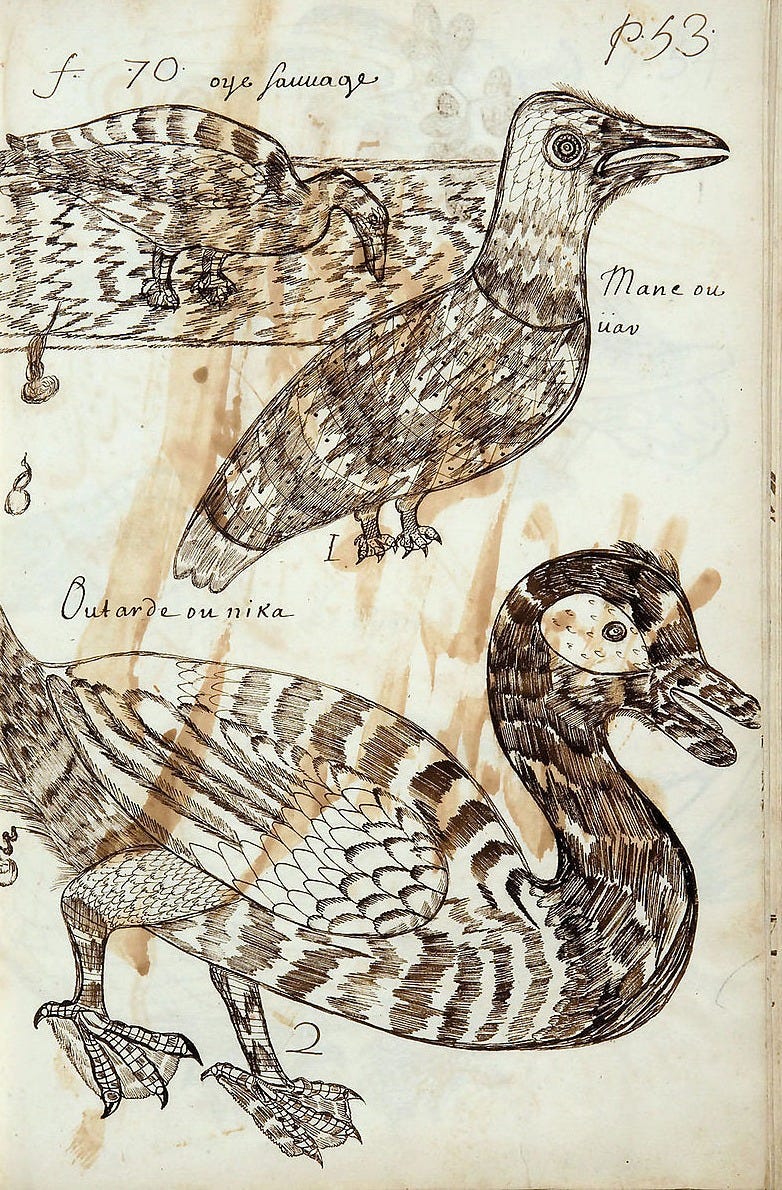 P. 53.
f. 70. oye sauuage
Mane ou
üav
1
Outarde ou nika
2